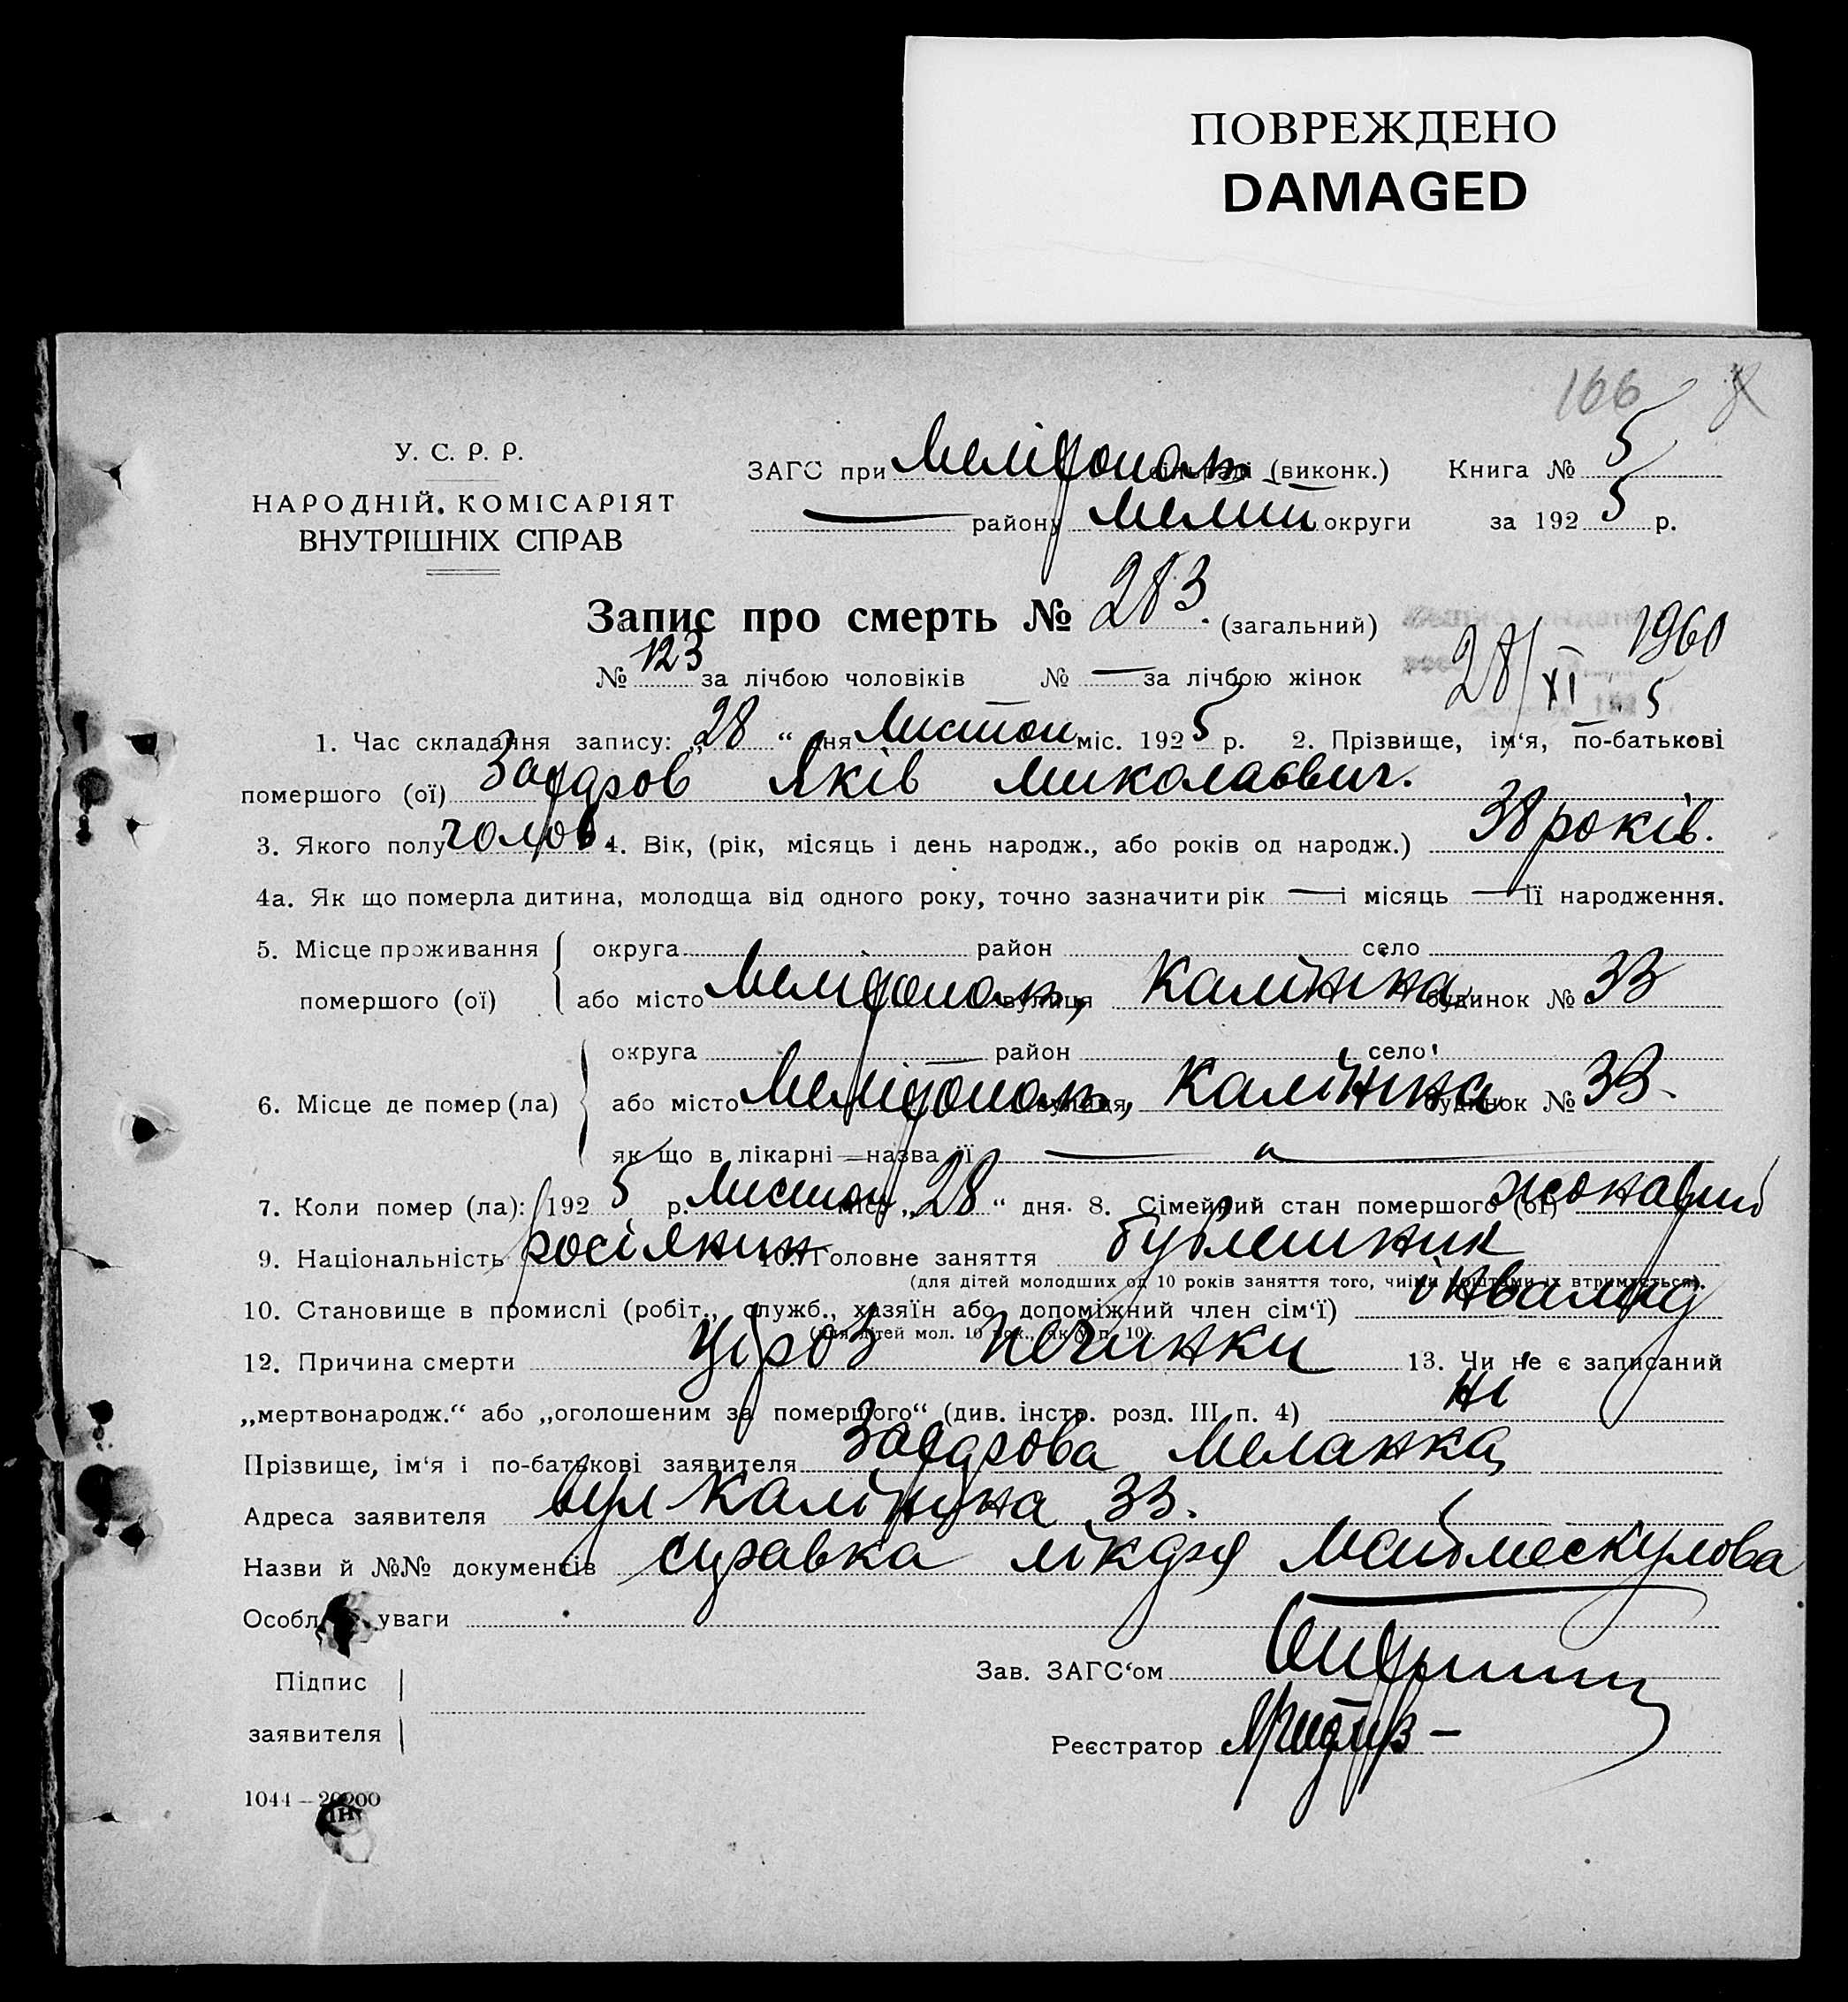 ПОВРЕЖДЕНО
DAMAGED
166
У. С. Р. Р.
НАРОДНІЙ. КОМІСАРІЯТ
ВНУТРІШНІХ СПРАВ
ЗАГС при Мелітополь (виконк.) Книга № 5
— району Меліт округи за 1925 р.
Запис про смерть № 283. (загальний)
№ 123 за лічбою чоловіків № — за лічбою жінок
1960
28/XI 5
1. Час складання запису: „28“ дня Листоп міс. 1925 р. 2. Прізвище, ім‘я, по-батькові
помершого (ої) Яків Миколаєвич.
3. Якого полу чолов. 4. Вік, (рік, місяць і день народж., або років од народж.) 38 років.
4а. Як що померла дитина, молодща від одного року, точно зазначити рік — і місяць — її народження.
5. Місце проживання округа район село
помершого (ої) або місто Мелітополь, вулиця Калініна будинок № 33
округа район село
6. Місце де помер (ла) або місто Мелітополь, вулиця Калініна будинок № 33.
як що в лікарні—назва її —
7. Коли помер (ла): 1925 р. Листоп міс. „28“ дня. 8. Сімейний стан помершого (ої) жонатий
9. Національність росіянин 10. Головне заняття
(для дітей молодших од 10 років заняття того, чиїми коштами їх втримується).
10. Становище в промислі (робіт., служб., хазяїн або допоміжний член сім‘ї) інвалид
(для дітей мол. 10 рок., як у п. 10).
12. Причина смерти Ціроз печинки 13. Чи не є записаний
„мертвонародж.“ або „оголошеним за помершого“ (див. інстр. розд. III п. 4) ні
Прізвище, ім‘я і по-батькові заявителя Меланка
Адреса заявителя вул Калініна 33.
Назви й №№ документів справка лікаря
Особл уваги
Підпис
заявителя
Зав. ЗАГС‘ом
Реєстратор
1044 — 20200